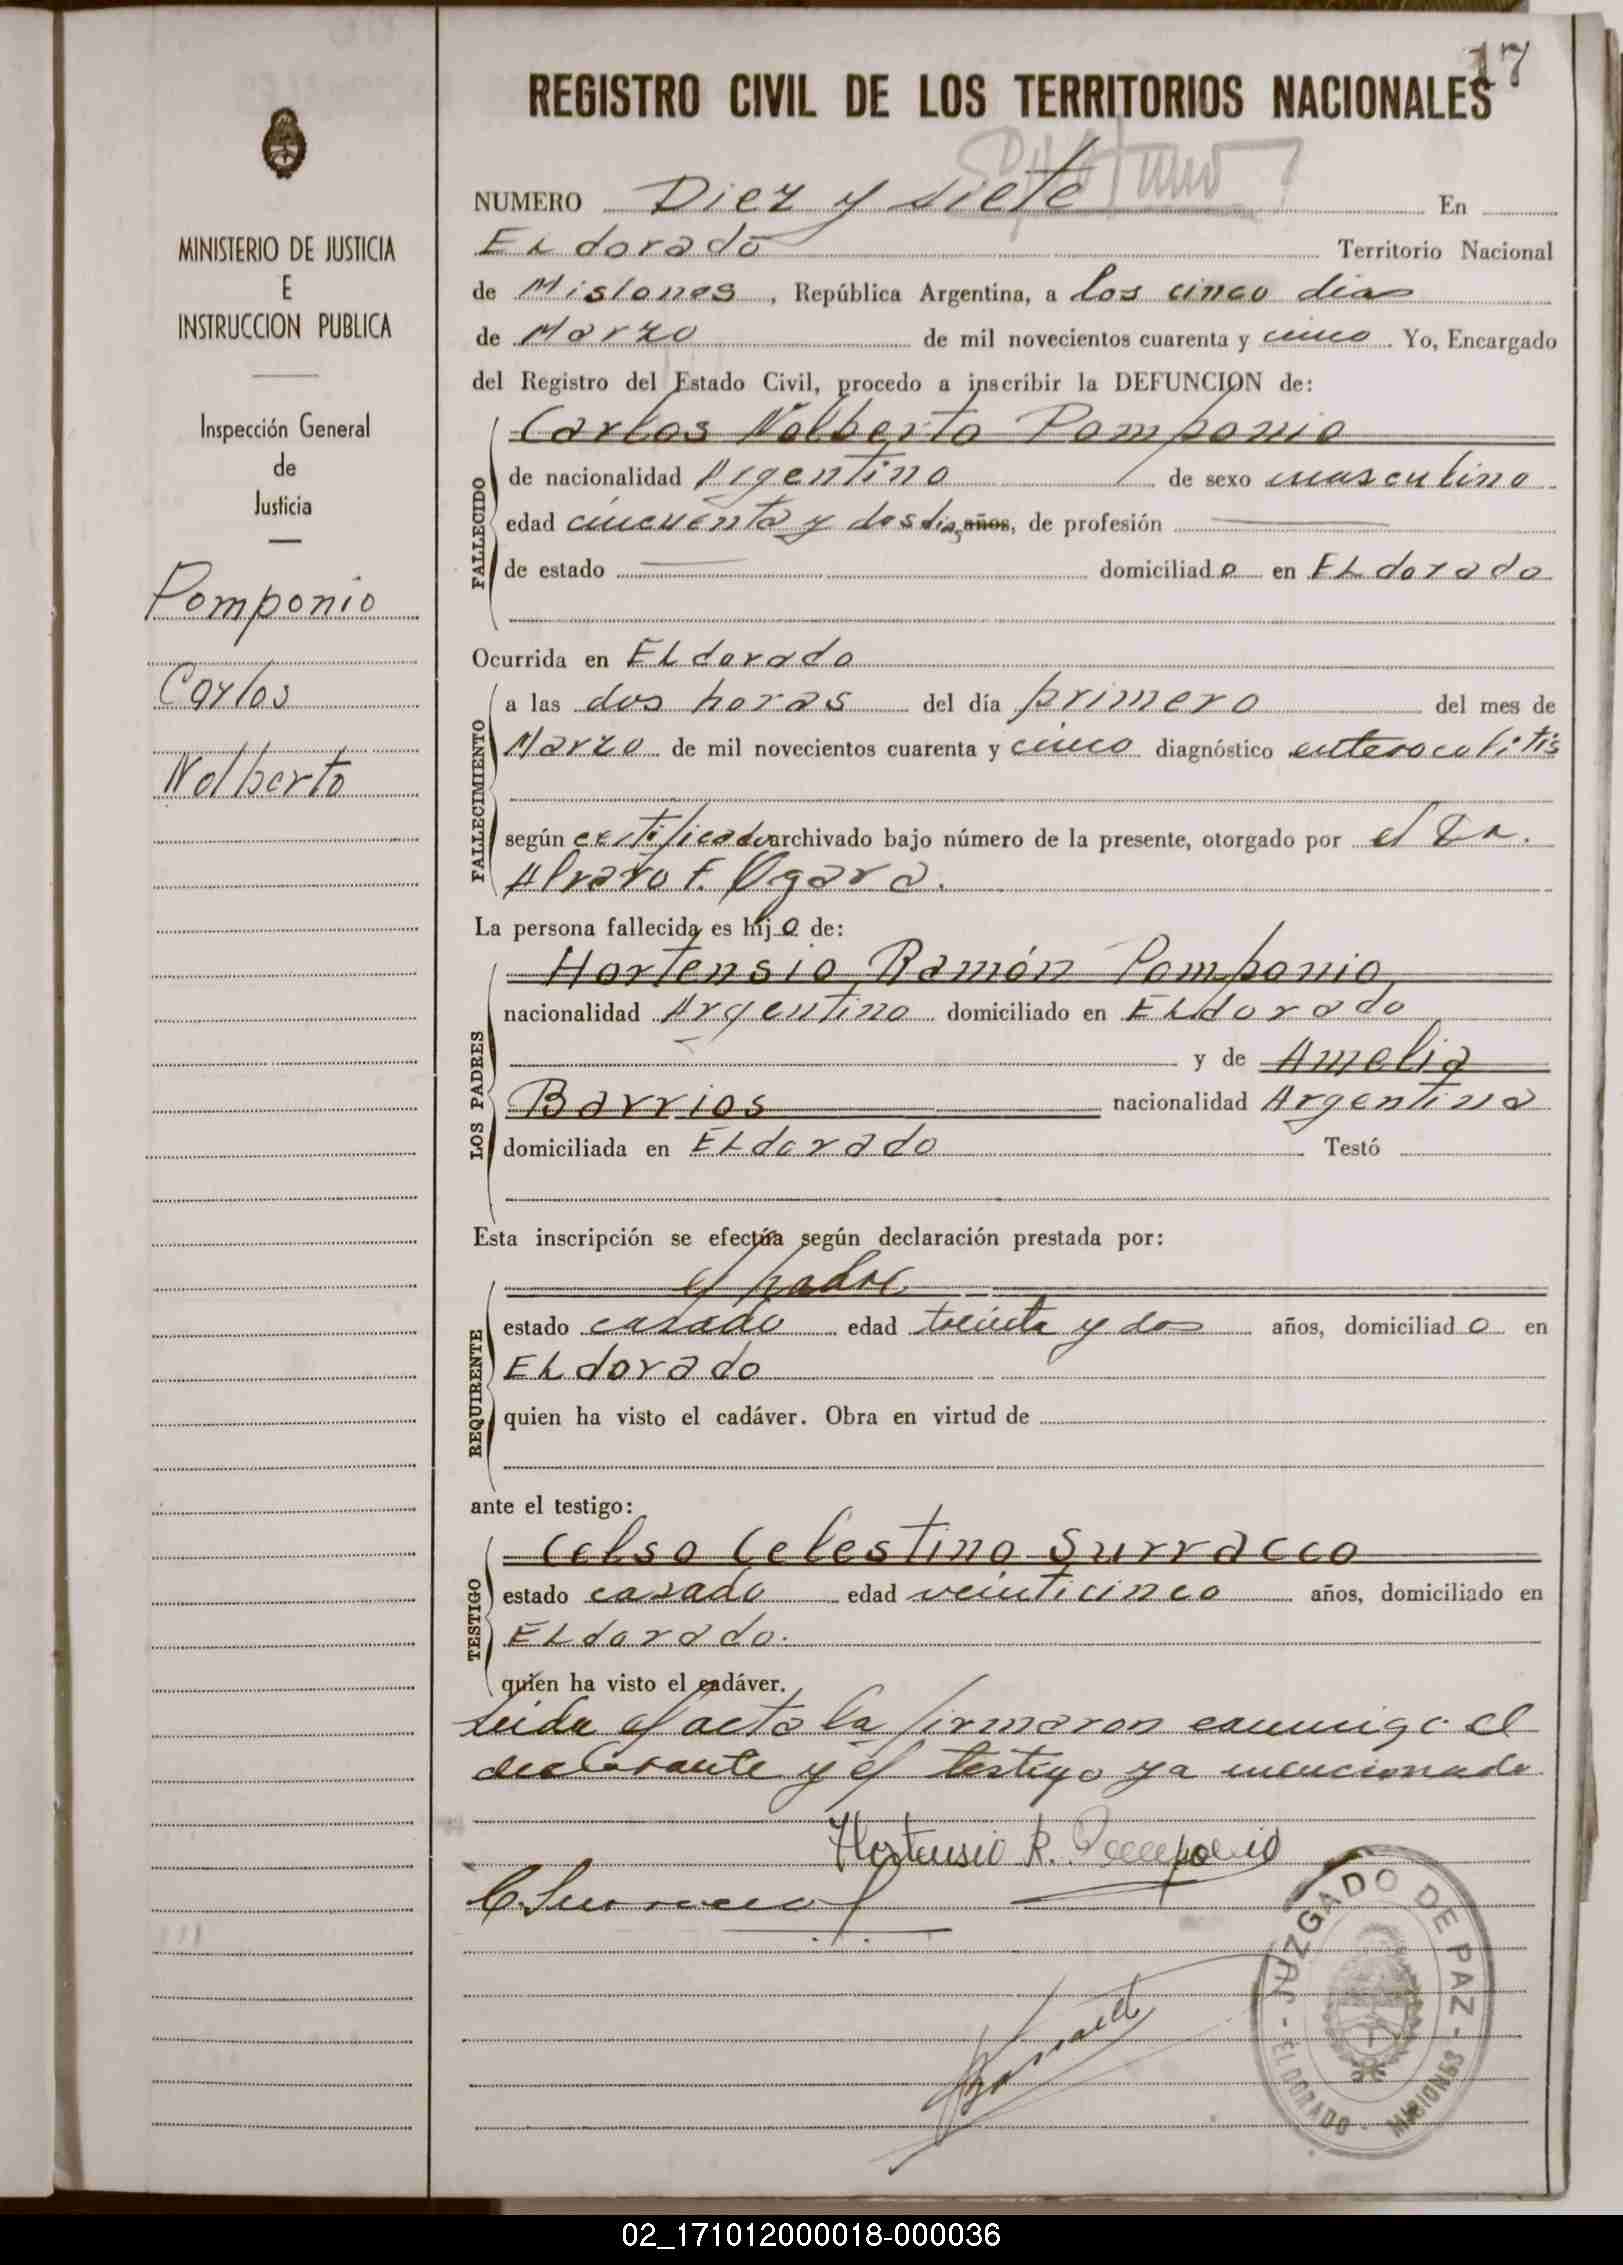 17
REGISTRO CIVIL DE LOS TERRITORIOS NACIONALES
NUMERO Diez y siete En
ELdorado Territorio Nacional
de Misiones, República Argentina, a los cinco dias
de Marzo de mil novecientos cuarenta y cinco. Yo, Encargado
del Registro del Estado Civil, procedo a inscribir la DEFUNCION de:
MINISTERIO DE JUSTICIA
E
INSTRUCCION PUBLICA
Inspección General
de
Justicia
Pomponio
Carlos
Nolberto
FALLECIDO
Carlos Nolberto Pomponio
de nacionalidad Argentino de sexo masculino
edad cincuenta y dos dias años, de profesión
de estado domiciliado en ELdorado
Ocurrida en ELdorado
FALLECIMIENTO
a las dos horas del día primero del mes de
Marzo de mil novecientos cuarenta y cinco diagnóstico enterocolitis
según certificado archivado bajo número de la presente, otorgado por el Dr.
Alvaro F. Ogara.
La persona fallecida es hijo de:
LOS PADRES
Hortensio Ramón Pomponio
nacionalidad Argentino domiciliado en ELdorado
y de Amelia
Barrios nacionalidad Argentina
domiciliada en ELdorado Testó
Esta inscripción se efectúa según declaración prestada por:
REQUIRENTE
el padre
estado casado edad treinta y dos años, domiciliado en
ELdorado
quien ha visto el cadáver. Obra en virtud de
ante el testigo:
TESTIGO
Celso Celestino Surracco
estado casado edad veinticinco años, domiciliado en
ELdorado.
quien ha visto el cadáver.
Leida el acta la firmaron conmigo el
declarante y el testigo ya mencionado
Hortensio R. Pomponio
JUZGADO DE PAZ - ELDORADO - MISIONES
02_171012000018-000036